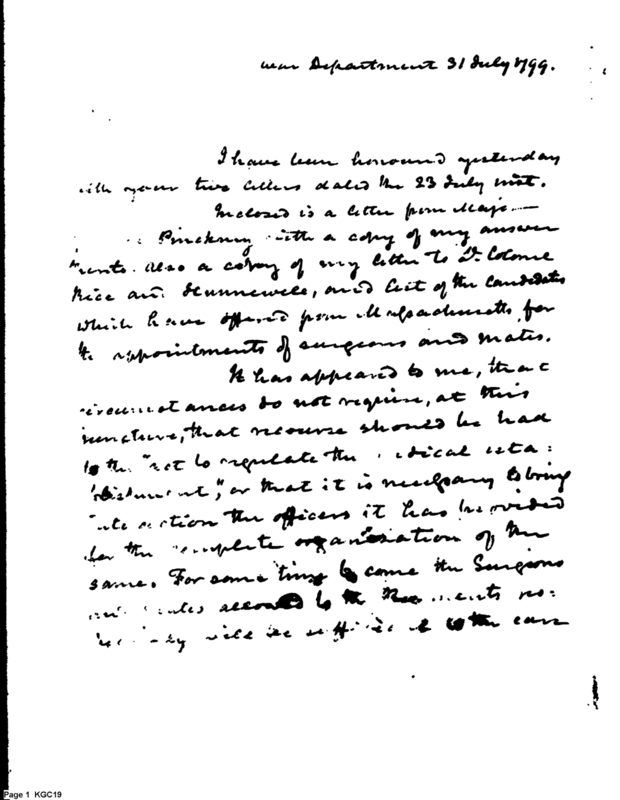 War Department 31 July 1799.
I have been honoured yesterday
with your two letters dated the 23 July inst.
Inclosed is a letter from Major
Pinckney with a copy of my answer
Also a copy of my letter to Dr. Colonel
Rice and Hunnewell, and list of the candidates
which have offered from Massachusetts for
the appointments of surgeons and mates.
It has appeared to me, that
circumstances do not require, at this
juncture, that recourse should be had
to the "act to regulate the medical esta:
blishment", or that it is necessary to bring
into action the officers it has provided
for the complete organisation of the
same. For some time to come the Surgeons
and mates allowed to the Regiments re:
will be sufficient to the care
Page 1 KGC19